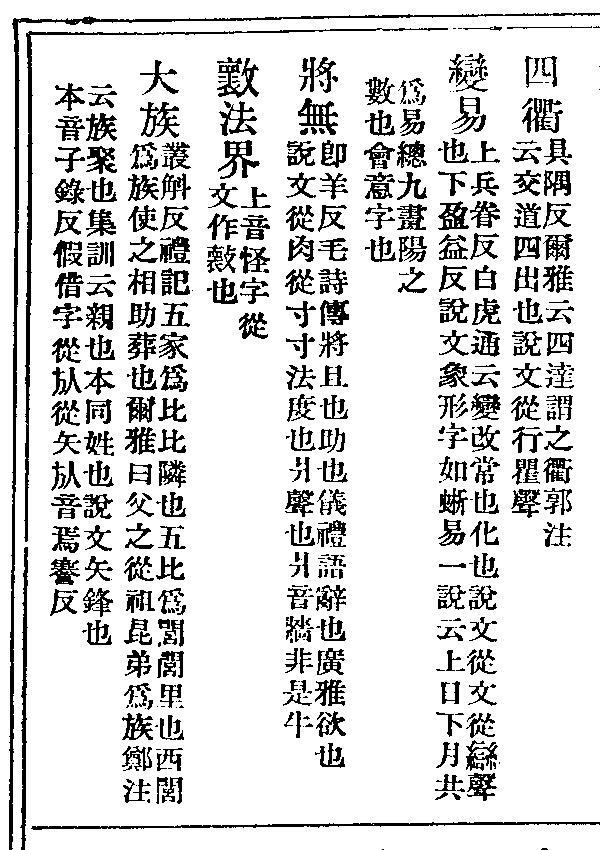 四衢具隅反爾雅云四達謂之衢郭注
云交道四出也說文從行瞿聲
變易上兵眷反白虎通云變改常也化也說文從文從䜌聲
也下盈益反說文象形字如蜥易一說云上日下月共
爲易總九畫陽之
數也會意字也
將無卽羊反毛詩傳將且也助也儀禮語辭也廣雅欲也
說文從肉從寸寸法度也爿聲也爿音牆非是牛
敳法界上音怪字從
文作㱁也
大族叢斛反禮記五家爲比比隣也五比爲閭閭里也四閭
爲族使之相助葬也爾雅曰父之從祖昆弟爲族鄭注
云族聚也集訓云親也本同姓也說文矢鋒也
本音子錄反假借字從㫃從矢㫃音焉蹇反